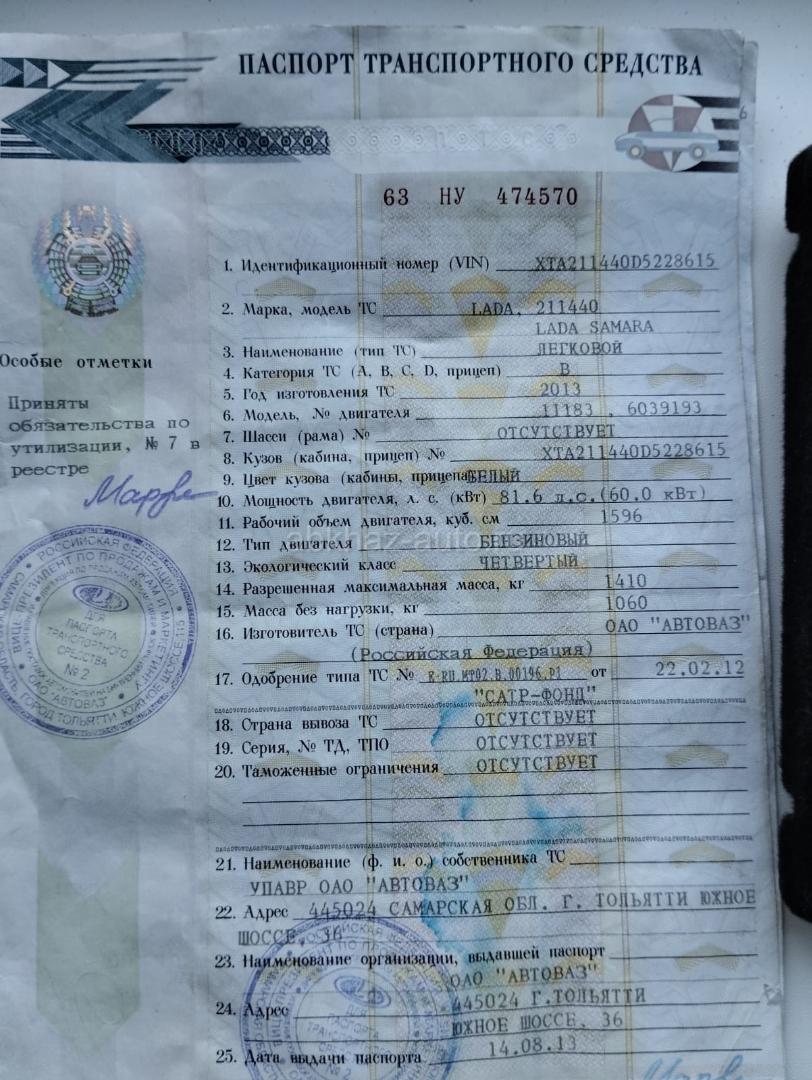 ПАСПОРТ ТРАНСПОРТНОГО СРЕДСТВА
63 НУ 474570
1. Идентификационный номер (VIN) XTA211440D5228615
2. Марка, модель ТС LADA, 211440
LADA SAMARA
3. Наименование (тип ТС) ЛЕГКОВОЙ
4. Категория ТС (A, B, C, D, прицеп) B
5. Год изготовления ТС 2013
6. Модель, № двигателя 11183 , 6039193
7. Шасси (рама) № ОТСУТСТВУЕТ
8. Кузов (кабина, прицеп) № XTA211440D5228615
9. Цвет кузова (кабины, прицепа) БЕЛЫЙ
10. Мощность двигателя, л. с. (кВт) 81.6 л.с.(60.0 кВт)
11. Рабочий объем двигателя, куб. см 1596
12. Тип двигателя БЕНЗИНОВЫЙ
13. Экологический класс ЧЕТВЕРТЫЙ
14. Разрешенная максимальная масса, кг 1410
15. Масса без нагрузки, кг 1060
16. Изготовитель ТС (страна) ОАО "АВТОВАЗ"
(Российская Федерация)
17. Одобрение типа ТС № E-RU.MT02.B.00196.P1 от 22.02.12
"САТР-ФОНД"
18. Страна вывоза ТС ОТСУТСТВУЕТ
19. Серия, № ТД, ТПО ОТСУТСТВУЕТ
20. Таможенные ограничения ОТСУТСТВУЕТ
21. Наименование (ф. и. о.) собственника ТС
УПАВР ОАО "АВТОВАЗ"
22. Адрес 445024 САМАРСКАЯ ОБЛ. Г. ТОЛЬЯТТИ ЮЖНОЕ
ШОССЕ, 36
23. Наименование организации, выдавшей паспорт
ОАО "АВТОВАЗ"
24. Адрес 445024 Г.ТОЛЬЯТТИ
ЮЖНОЕ ШОССЕ, 36
25. Дата выдачи паспорта 14.08.13
Особые отметки
Приняты
обязательства по
утилизации, № 7 в
реестре
РОССИЙСКАЯ ФЕДЕРАЦИЯ
ВИЦЕ-ПРЕЗИДЕНТ ПО ПРОДАЖАМ И МАРКЕТИНГУ
ОАО "АВТОВАЗ"
ГОРОД ТОЛЬЯТТИ ЮЖНОЕ ШОССЕ
ДЛЯ
ПАСПОРТА
ТРАНСПОРТНОГО
СРЕДСТВА
№ 2